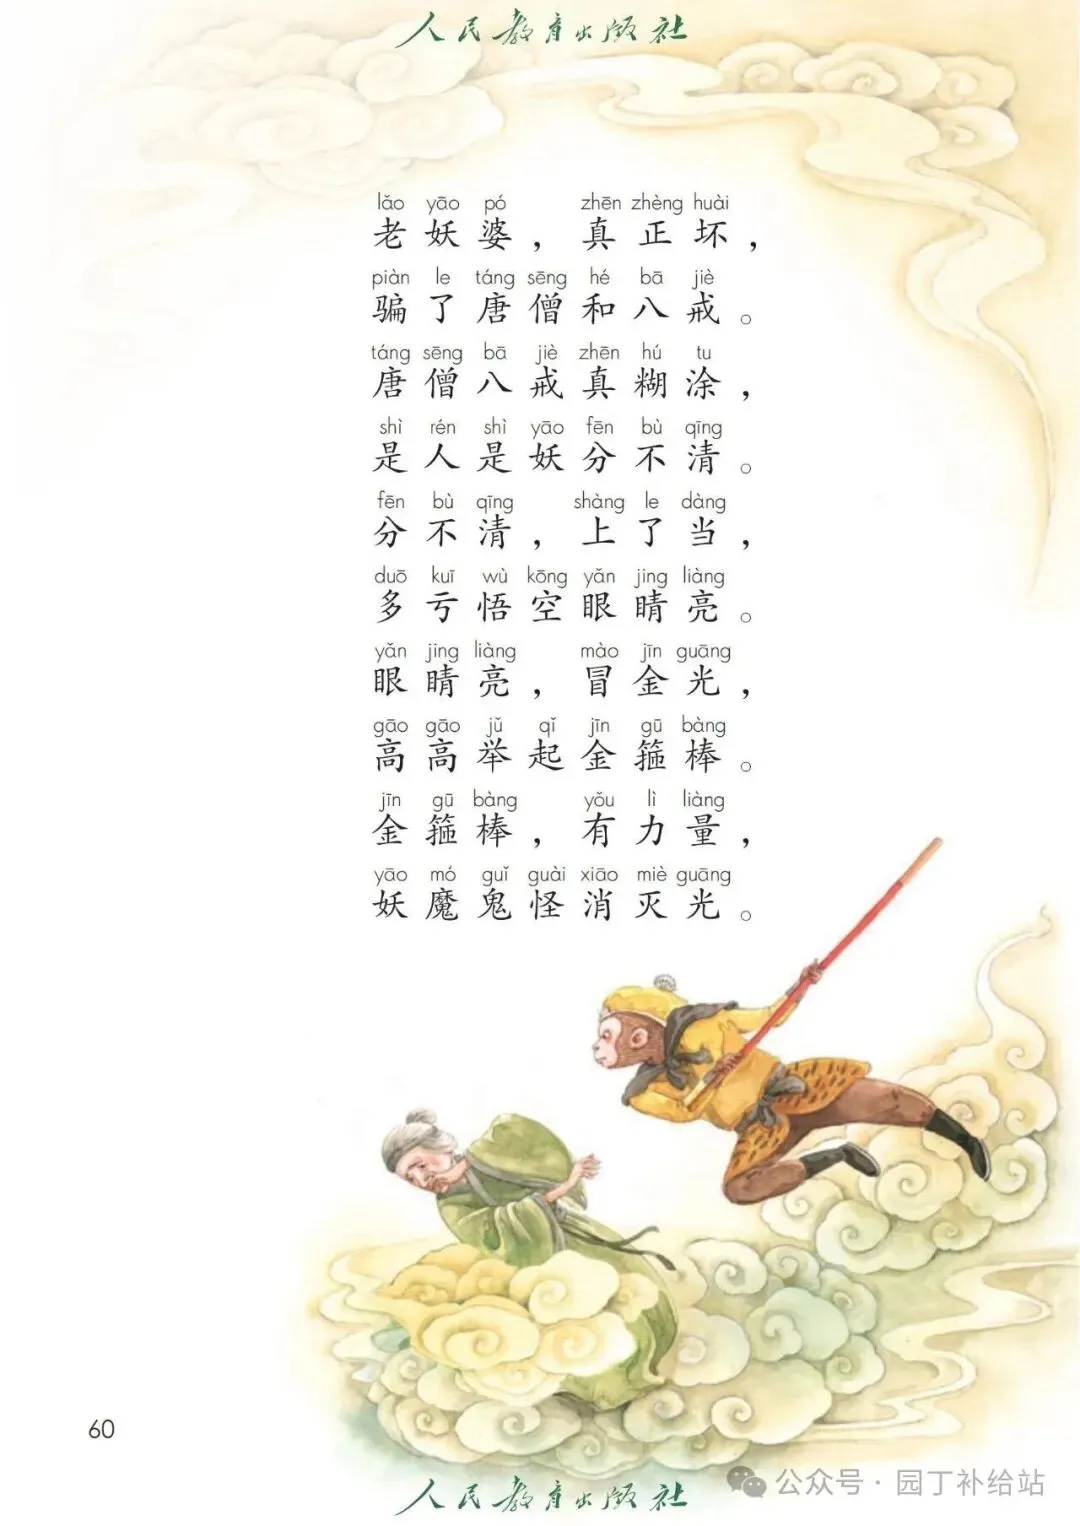 人民教育出版社
lǎo yāo pó zhēn zhèng huài
老妖婆，真正坏，
piàn le táng sēng hé bā jiè
骗了唐僧和八戒。
táng sēng bā jiè zhēn hú tu
唐僧八戒真糊涂，
shì rén shì yāo fēn bù qīng
是人是妖分不清。
fēn bù qīng shàng le dàng
分不清，上了当，
duō kuī wù kōng yǎn jing liàng
多亏悟空眼睛亮。
yǎn jing liàng mào jīn guāng
眼睛亮，冒金光，
gāo gāo jǔ qǐ jīn gū bàng
高高举起金箍棒。
jīn gū bàng yǒu lì liàng
金箍棒，有力量，
yāo mó guǐ guài xiāo miè guāng
妖魔鬼怪消灭光。
60
公众号·园丁补给站
人民教育出版社